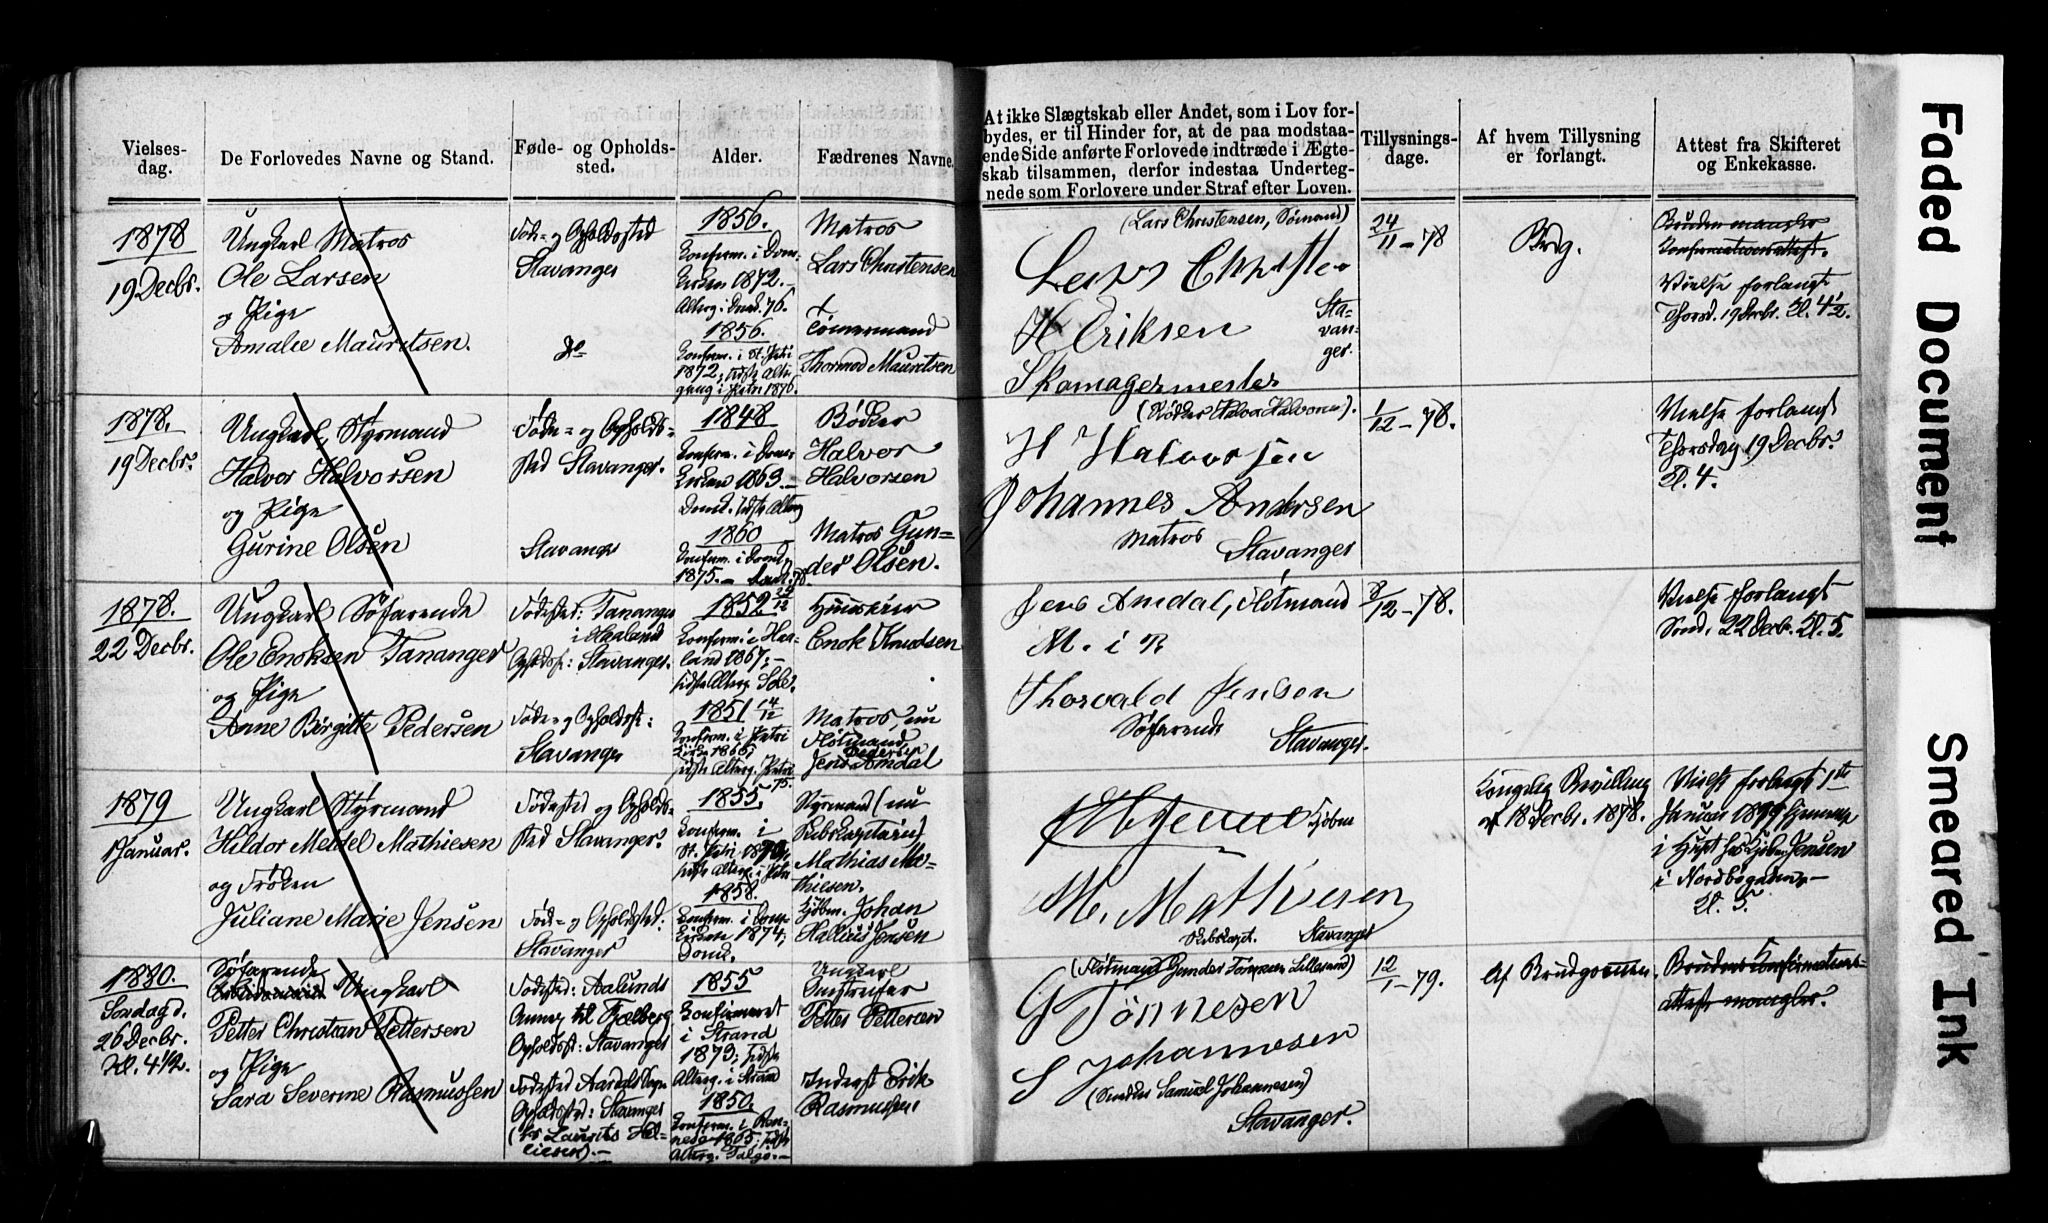 Vielses-
dag.
De Forlovedes Navne og Stand.
Føde- og Opholds-
sted.
Alder.
Fædrenes Navne.
At ikke Slægtskab eller Andet, som i Lov for-
bydes, er til Hinder for, at de paa modstaa-
ende Side anførte Forlovede indtræde i Ægte-
skab tilsammen, derfor indestaa Underteg-
nede som Forlovere under Straf efter Loven.
Tillysnings-
dage.
Af hvem Tillysning
er forlangt.
Attest fra Skifteret
og Enkekasse.
1878
19 Decbr.
Ungkarl Matros
Ole Larsen
og Pige
Amalie Mauritsen.
Føde- og Opholdssted
Stavanger
Do
1856.
Konfirm. i Dom-
kirken 1872.-
Alterg. i Domk. 76.
1856.
Konfirm. i St. Petri
1872; sidste Alter-
gang i Petri 1876.
Matros
Lars Christensen
Tømermand
Thormod Mauritsen
(Lars Christensen, Sømand)
Lars Christe
H Eriksen
Sta-
van-
ger.
Skomagermester
24/11 - 78
Brdg.
Bruden mangler
Konfirmationsattest.
Vielse forlangt
Thorsd. 19 Decbr. Kl. 4 1/2.
1878.
19 Decbr.
Ungkarl, Styrmand
Halvor Halvorsen
og Pige
Gurine Olsen
Føde- og Opholds-
sted Stavanger.
Stavanger
1848
Konfirm. i Dom-
kirken 1863.-
Domk. sidste Alterg
1860
Konfirm. i Domk.
1875.-
Bødker
Halvor
Halvorsen
Matros Gun-
der Olsen.
(Bødker Halvor Halvorsen).
H Halvorsen
Johannes Andersen
Matros
Stavanger
1/12 - 78.
Vielse forlangt
Thorsdag 19 Decbr.
Kl. 4.
1878.
22 Decbr.
Ungkarl Søfarende
Ole Enoksen Tananger
og Pige
Anne Birgitte Pedersen
Fødested: Tananger
i Haaland
Opholdsst: Stavanger.
Føde- og Opholdsst:
Stavanger
1852
Konfirm. i Haa-
land 1867;-
sidste Alterg. Sole.
1851 14/12
Konfirm. i Petri
Kirke 1866;
sidste Alterg. Petri
75.
Enok Knudsen
Matros, nu
Flotmand
Pedersen
Jens Amdal
Jens Amdal, Flotmand
M. i P
Thorvald Jensen
Søfarende
Stavanger.
8/12 - 78.
Vielse forlangt
Sønd. 22 Decb. Kl. 5.
1879
1 Januar.
Ungkarl Styrmand
Hildor Meidel Mathiesen
og Frøken
Juliane Marie Jensen
Fødested og Opholds-
sted Stavanger.
Føde- og Opholdssted:
Stavanger
1855.
Konfirm. i
St. Petri 1870,
sidste Alterg. i Petri
1858.
Konfirm. i Dom-
kirken 1874;
Domk.
Styrmand (nu
Skibskaptein)
Mathias Ma-
thiesen.
Kjøbm. Johan
Hallius Jensen
Kjøbm
M. Mathiesen
Skibskapt.
Stavanger
Kongelig Bevilling
af 18 Decbr. 1878.
Vielse forlangt 1ste
Januar 1879 hjemme
i Huset hos Kjøbm. Jensen
i Nordbøgaden.-
Kl. 5.
1880.
Søndag d.
26 Decbr.
Kl. 4 1/2.
Søfarende
Ungkarl
Petter Christian Pettersen
og Pige
Sara Severine Rasmussen
Fødested: Aalunds
Annex til Fjelberg
Opholdsst: Stavanger
Fødested Aardals Sogn
Opholdssted: Stavanger
(hos Laurits Hel-
liesen).-
1855
Konfirmeret
i Strand
1873; sidste
Alterg. i Strand
1850.
Konfirm. i Ren-
nesø 1865; sidste
Alterg. Talgø.-
Ungkarl
Petter Pettersen
Inderst Erik
Rasmussen
(Flotmand Gunder Tønnesen Lillesund)
G Tønnesen
S Johannesen
(Snedker Samuel Johannesen)
Stavanger.
12/1 - 79.
Af Brudgommen
Brudens Konfirmations-
attest mangler.
Faded Document
Smeared Ink